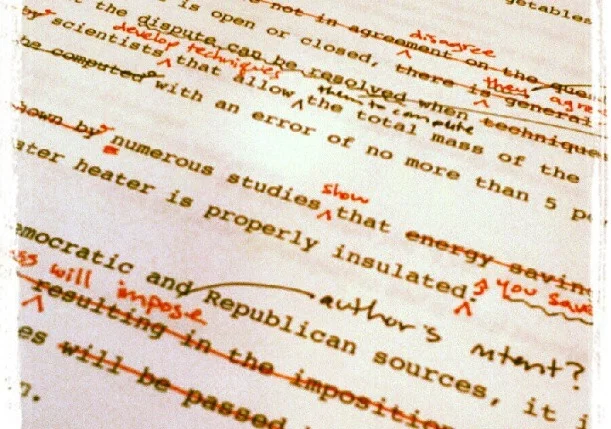 getables
not in agreement on the ques
disagree
is open or closed, there is general
they agree
t the dispute can be resolved when techniques
develop techniques
by scientists that allow the total mass of the
them to compute
be computed with an error of no more than 5 pe
hown by numerous studies that energy savin
show
ater heater is properly insulated.
you save
emocratic and Republican sources, it i
author's intent?
ss will impose
resulting in the imposition
es will be passed
n.